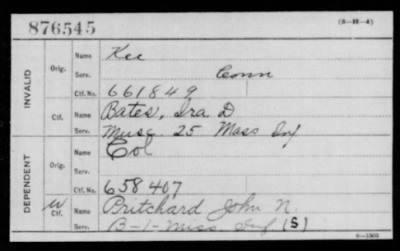 876545
(3-10-4)
INVALID
Orig.
Name Kee
Serv. Conn
Ctf. No. 661849
Ctf.
Name Bates, Ira D
Serv. Musc. 25 Mass Inf
DEPENDENT
Orig.
Name Col
Serv.
Ctf. No. 658407
W
Ctf.
Name Pritchard John N.
Serv. B-1-Miss Inf (S)